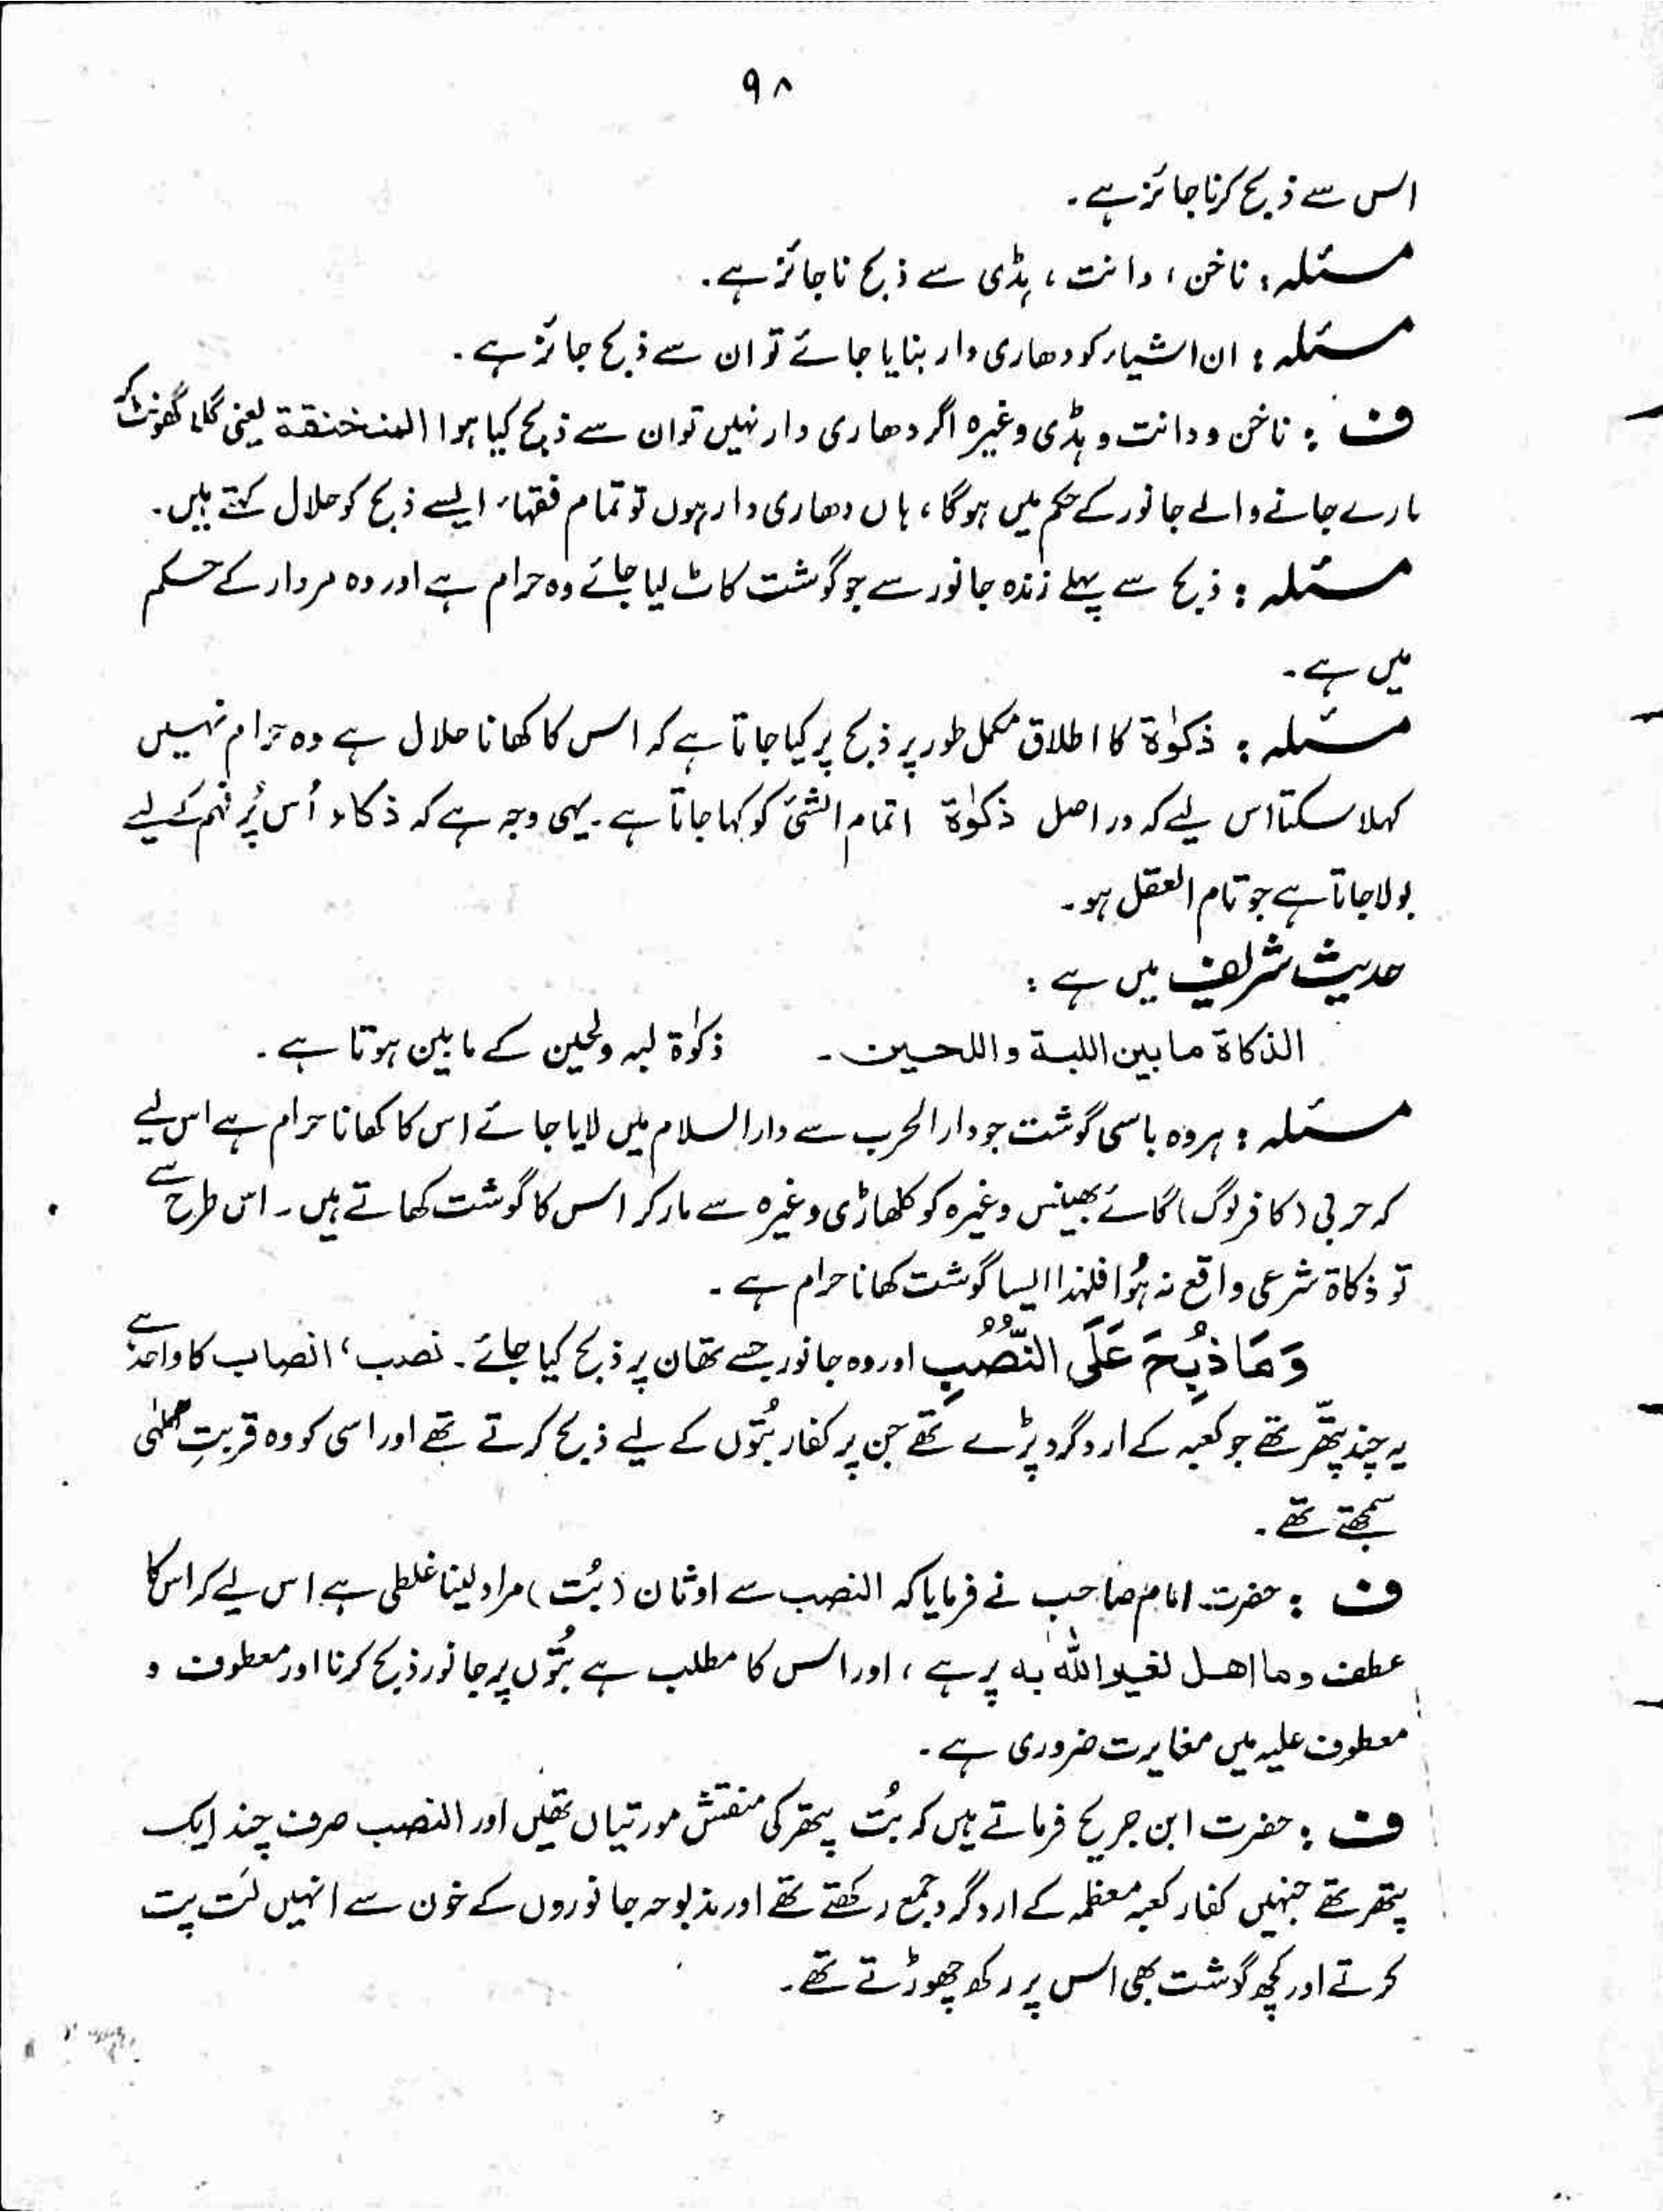 ۹۸
اس سے ذبح کرنا جائز ہے۔
مسئلہ : ناخن ، دانت ، ہڈی سے ذبح ناجائز ہے۔
مسئلہ : ان اشیاء کو دھاری دار بنایا جائے تو ان سے ذبح جائز ہے۔
ف : ناخن و دانت و ہڈی وغیرہ اگر دھاری دار نہیں تو ان سے ذبح کیا ہوا المنخنقة یعنی گلا گھونٹ کر
مارے جانے والے جانور کے حکم میں ہوگا ، ہاں دھاری دار ہوں تو تمام فقہاء ایسے ذبح کو حلال کہتے ہیں۔
مسئلہ : ذبح سے پہلے زندہ جانور سے جو گوشت کاٹ لیا جائے وہ حرام ہے اور وہ مردار کے حکم
میں ہے۔
مسئلہ : ذکوٰة کا اطلاق مکمل طور پر ذبح پر کیا جاتا ہے کہ اس کا کھانا حلال ہے وہ حرام نہیں
کہلا سکتا اس لیے کہ دراصل ذکوٰة اتمام الشئ کو کہا جاتا ہے۔ یہی وجہ ہے کہ ذکاء اُس پُر فہم کے لیے
بولا جاتا ہے جو تام العقل ہو۔
حدیث شریف میں ہے :
الذکاة ما بین اللبة و اللحیین ۔ ذکوٰة لبہ و لحیین کے مابین ہوتا ہے۔
مسئلہ : ہر وہ باسی گوشت جو دار الحرب سے دار السلام میں لایا جائے اس کا کھانا حرام ہے اس لیے
کہ حربی (کافر لوگ) گائے بھینس وغیرہ کو کلھاڑی وغیرہ سے مار کر اس کا گوشت کھاتے ہیں۔ اس طرح سے
تو ذکاة شرعی واقع نہ ہُوا فلہٰذا ایسا گوشت کھانا حرام ہے۔
وَمَا ذُبِحَ عَلَى النُّصُبِ اور وہ جانور جسے تھان پر ذبح کیا جائے۔ نصب ، انصاب کا واحد ہے
یہ چند پتّھر تھے جو کعبہ کے ارد گرد پڑے تھے جن پر کفار بُتوں کے لیے ذبح کرتے تھے اور اسی کو وہ قربتِ عظمٰی
سمجھتے تھے۔
ف : حضرت امام صاحب نے فرمایا کہ النصب سے اوثان (بُت) مراد لینا غلطی ہے اس لیے کہ اس کا
عطف وما اھل لغیر اللہ بہ پر ہے ، اور اس کا مطلب ہے بُتوں پر جانور ذبح کرنا اور معطوف و
معطوف علیہ میں مغایرت ضروری ہے۔
ف : حضرت ابن جریح فرماتے ہیں کہ بُت پتھر کی منقش مورتیاں تھیں اور النصب صرف چند ایک
پتھر تھے جنہیں کفار کعبہ معظمہ کے ارد گرد جمع رکھتے تھے اور مذبوحہ جانوروں کے خون سے انہیں لَت پت
کرتے اور کچھ گوشت بھی اس پر رکھ چھوڑتے تھے۔